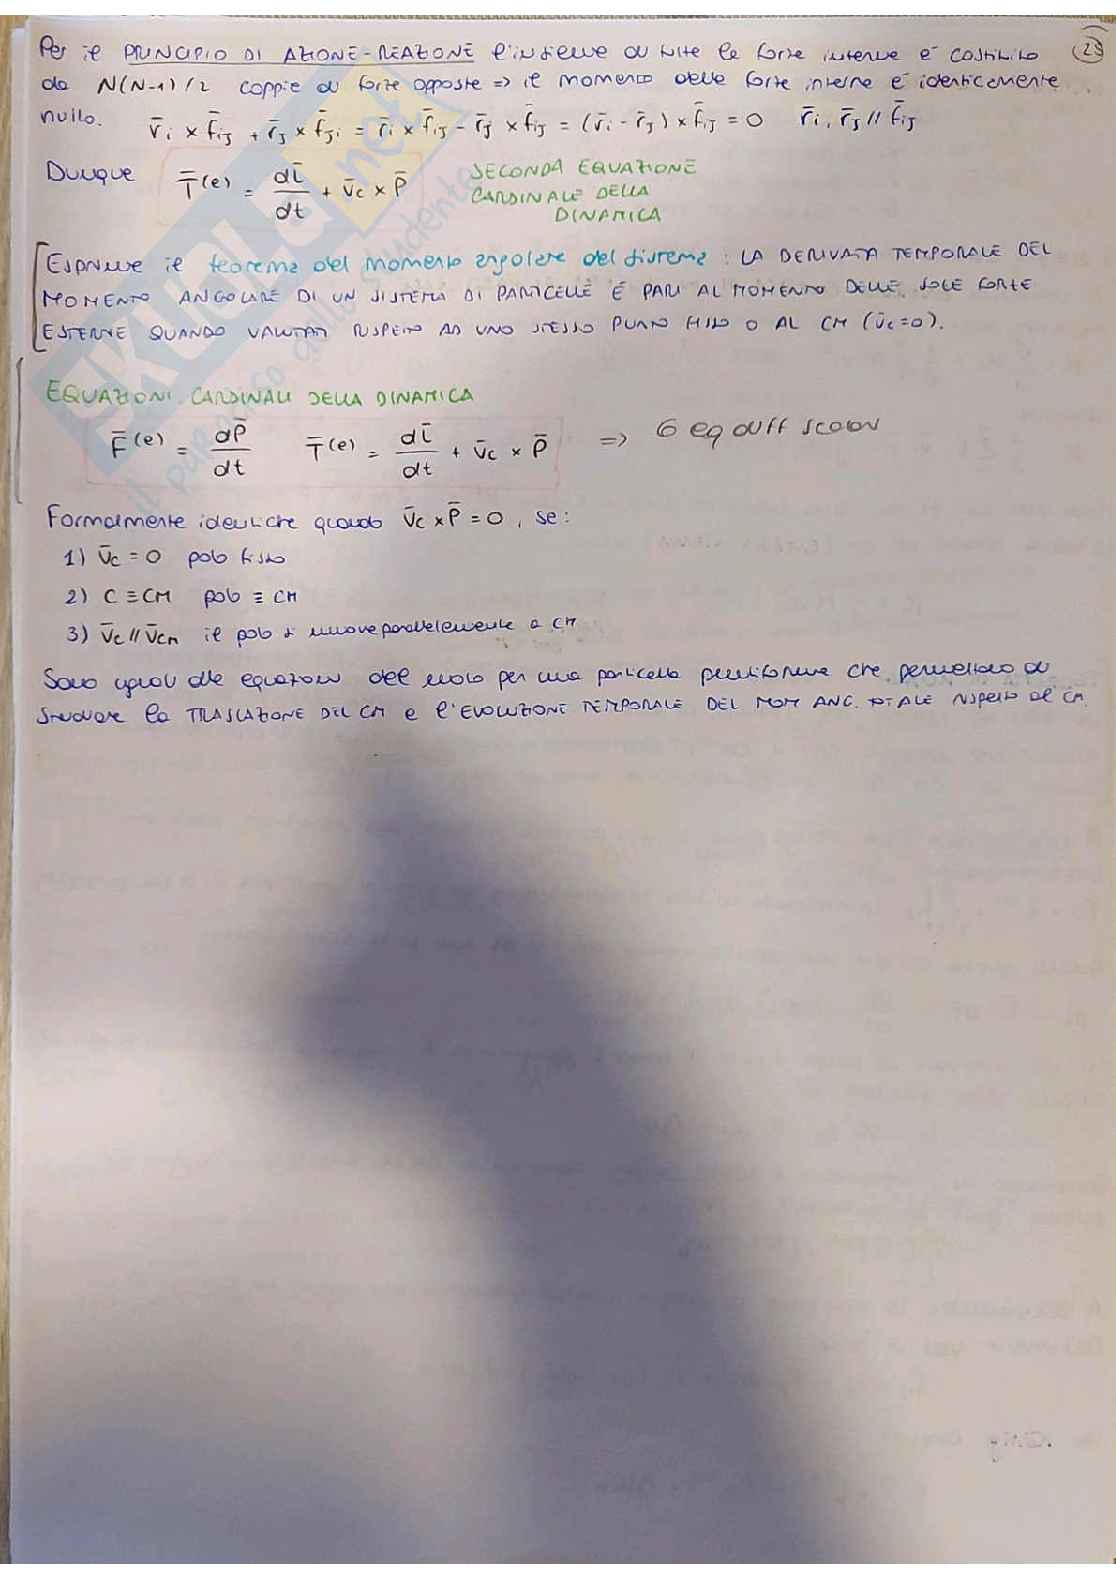 Per il PRINCIPIO DI AZIONE-REAZIONE l'insieme di tutte le forze interne è costituito (25)
da N(N-1)/2 coppie di forze opposte => il momento delle forze interne è identicamente
nullo. r̄i × f̄ij + r̄j × f̄ji = r̄i × f̄ij - r̄j × f̄ij = (r̄i - r̄j) × f̄ij = 0 r̄i, r̄j // f̄ij
Dunque T̄(e) = dL̄/dt + v̄c × P̄ SECONDA EQUAZIONE
CARDINALE DELLA
DINAMICA
Esprime il teorema del momento angolare del sistema : LA DERIVATA TEMPORALE DEL
MOMENTO ANGOLARE DI UN SISTEMA DI PARTICELLE È PARI AL MOMENTO DELLE SOLE FORZE
ESTERNE QUANDO VALUTATI RISPETTO AD UNO STESSO PUNTO FISSO O AL CM (v̄c=0).
EQUAZIONI CARDINALI DELLA DINAMICA
F̄(e) = dP̄/dt T̄(e) = dL̄/dt + v̄c × P̄ => 6 eq diff scalari
Formalmente identiche quando v̄c × P̄ = 0, se:
1) v̄c = 0 polo fisso
2) C ≡ CM polo ≡ CM
3) v̄c // v̄cm il polo si muove parallelamente a CM
Sono uguali alle equazioni del moto per una particella puntiforme che permettono di
studiare la TRASLAZIONE DEL CM e l'EVOLUZIONE TEMPORALE DEL MOM ANG. TOTALE RISPETTO AL CM.
SKUOLA.net
il punto
dello studente